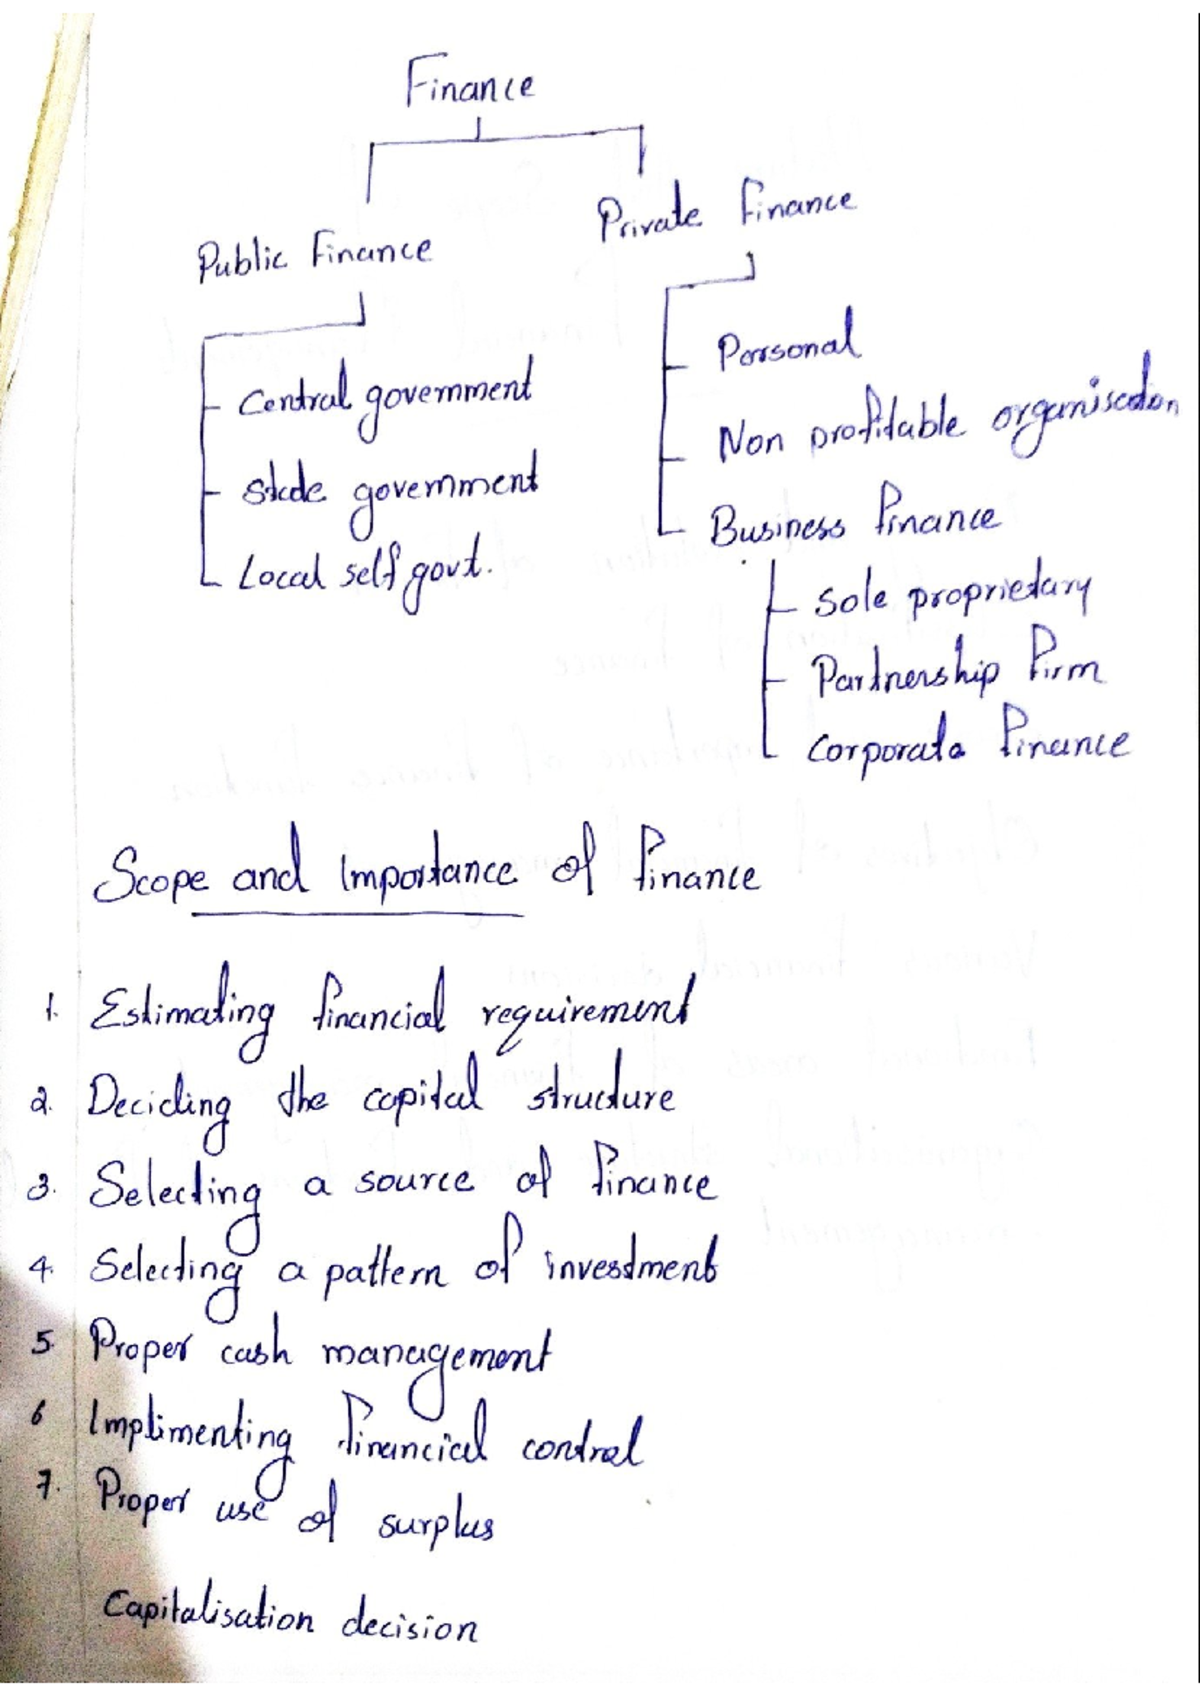 Finance
Public Finance
Private Finance
Central government
State government
Local self govt.
Personal
Non profitable organisation
Business Finance
Sole proprietary
Partnership Firm
Corporate Finance
Scope and Importance of Finance
1. Estimating financial requirement
2. Deciding the capital structure
3. Selecting a source of finance
4. Selecting a pattern of investment
5. Proper cash management
6 Implimenting financial control
7. Proper use of surplus
Capitalisation decision